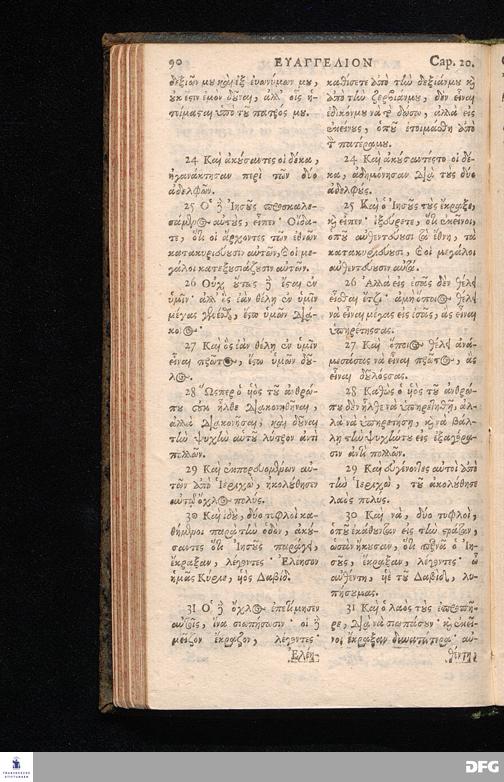 90 ΕΥΑΓΓΕΛΙΟΝ Cap. 20.
δεξιῶν μου καὶ ἐξ εὐωνύμων μου,
οὐκ ἔστιν ἐμὸν δοῦναι, ἀλλ' οἷς ἡ-
τοίμασται ὑπὸ τοῦ πατρός μου.
24 Καὶ ἀκούσαντες οἱ δέκα,
ἠγανάκτησαν περὶ τῶν δύο
ἀδελφῶν.
25 Ὁ δὲ Ἰησοῦς προσκαλε-
σάμενος αὐτοὺς, εἶπεν· Οἴδα-
τε, ὅτι οἱ ἄρχοντες τῶν ἐθνῶν
κατακυριεύουσιν αὐτῶν, καὶ οἱ με-
γάλοι κατεξουσιάζουσιν αὐτῶν.
26 Οὐχ οὕτως δὲ ἔσται ἐν
ὑμῖν· ἀλλ' ὃς ἐὰν θέλῃ ἐν ὑμῖν
μέγας γενέσθαι, ἔστω ὑμῶν διά-
κονος·
27 Καὶ ὃς ἐὰν θέλῃ ἐν ὑμῖν
εἶναι πρῶτος, ἔστω ὑμῶν δοῦ-
λος.
28 Ὥσπερ ὁ υἱὸς τοῦ ἀνθρώ-
που οὐκ ἦλθε διακονηθῆναι,
ἀλλὰ διακονῆσαι, καὶ δοῦναι
τὴν ψυχὴν αὑτοῦ λύτρον ἀντὶ
πολλῶν.
29 Καὶ ἐκπορευομένων αὐ-
τῶν ἀπὸ Ἱεριχὼ, ἠκολούθησεν
αὐτῷ ὄχλος πολύς.
30 Καὶ ἰδοὺ, δύο τυφλοὶ κα-
θήμενοι παρὰ τὴν ὁδὸν, ἀκού-
σαντες ὅτι Ἰησοῦς παράγει,
ἔκραξαν, λέγοντες· Ἐλέησον
ἡμᾶς Κύριε, υἱὸς Δαβίδ.
31 Ὁ δὲ ὄχλος ἐπετίμησεν
αὐτοῖς, ἵνα σιωπήσωσιν· οἱ δὲ
μεῖζον ἔκραζον, λέγοντες·
Ἐλέη-
καθίσετε ἀπὸ τὴν δεξιάνμου κὶ
ἀπὸ τὴν ζερβίανμου, δὲν εἶναι
ἐδικόνμου νὰ τὸ δώσω, ἀλλὰ εἰς
ἐκείνους, ὁποῦ ἑτοιμάσθη ἀπὸ
τὸν πατέραμου.
24 Καὶ ἀκούσαντέςτο οἱ δέ-
κα, ἀδημόνησαν διὰ τοὺς δύο
ἀδελφούς.
25 Καὶ ὁ Ἰησοῦς τοὺς ἔκραξε,
κὶ εἶπεν· ἐξεύρετε, ὅτι ἐκεῖνοι,
ὁποῦ αὐθεντεύουσι τὰ ἔθνη, τὰ
κατακυριεύουσι, καὶ οἱ μεγάλοι
αὐθεντεύουσιν αὐτά.
26 Ἀλλὰ εἰς ἐσᾶς δὲν θέλει
εἶσθαι ἔτζι· ἀμὴ ὅποιος θέλει
νὰ εἶναι μέγας εἰς ἐσᾶς, ἂς εἶναι
ὑπηρέτηςσας.
27 Καὶ ὅποιος θέλει ἀνά-
μεσάσας νὰ εἶναι πρῶτος, ἂς
εἶναι δοῦλόςσας.
28 Καθὼς ὁ υἱὸς τοῦ ἀνθρώ-
που δὲν ἦλθε νὰ ὑπηρετηθῇ, ἀλ-
λὰ νὰ ὑπηρετήσῃ, κὶ νὰ βάλ-
λῃ τὴν ψυχήντου εἰς ἐξαγόρα-
σιν ἀντὶ πολλῶν.
29 Καὶ εὐγένοντες αὐτοὶ ἀπὸ
τὴν Ἱεριχὼ, τοῦ ἀκολούθησε
λαὸς πολύς.
30 Καὶ νὰ, δύο τυφλοὶ,
ὁποῦ ἐκάθουνταν εἰς τὴν στράταν,
ὡσὰν ἤκουσαν, ὅτι περνᾷ ὁ Ἰη-
σοῦς, ἔκραξαν, λέγοντες· ὦ
αὐθέντη, υἱὲ τοῦ Δαβὶδ, λυ-
πήσουμας.
31 Καὶ ὁ λαὸς τοὺς ἐπερίπη-
ρε, διὰ νὰ σιωπάσουν· κὶ ἐκεῖ-
νοι ἔκραξαν δυνατώτερα· αὐ-
θέντη,
DFG